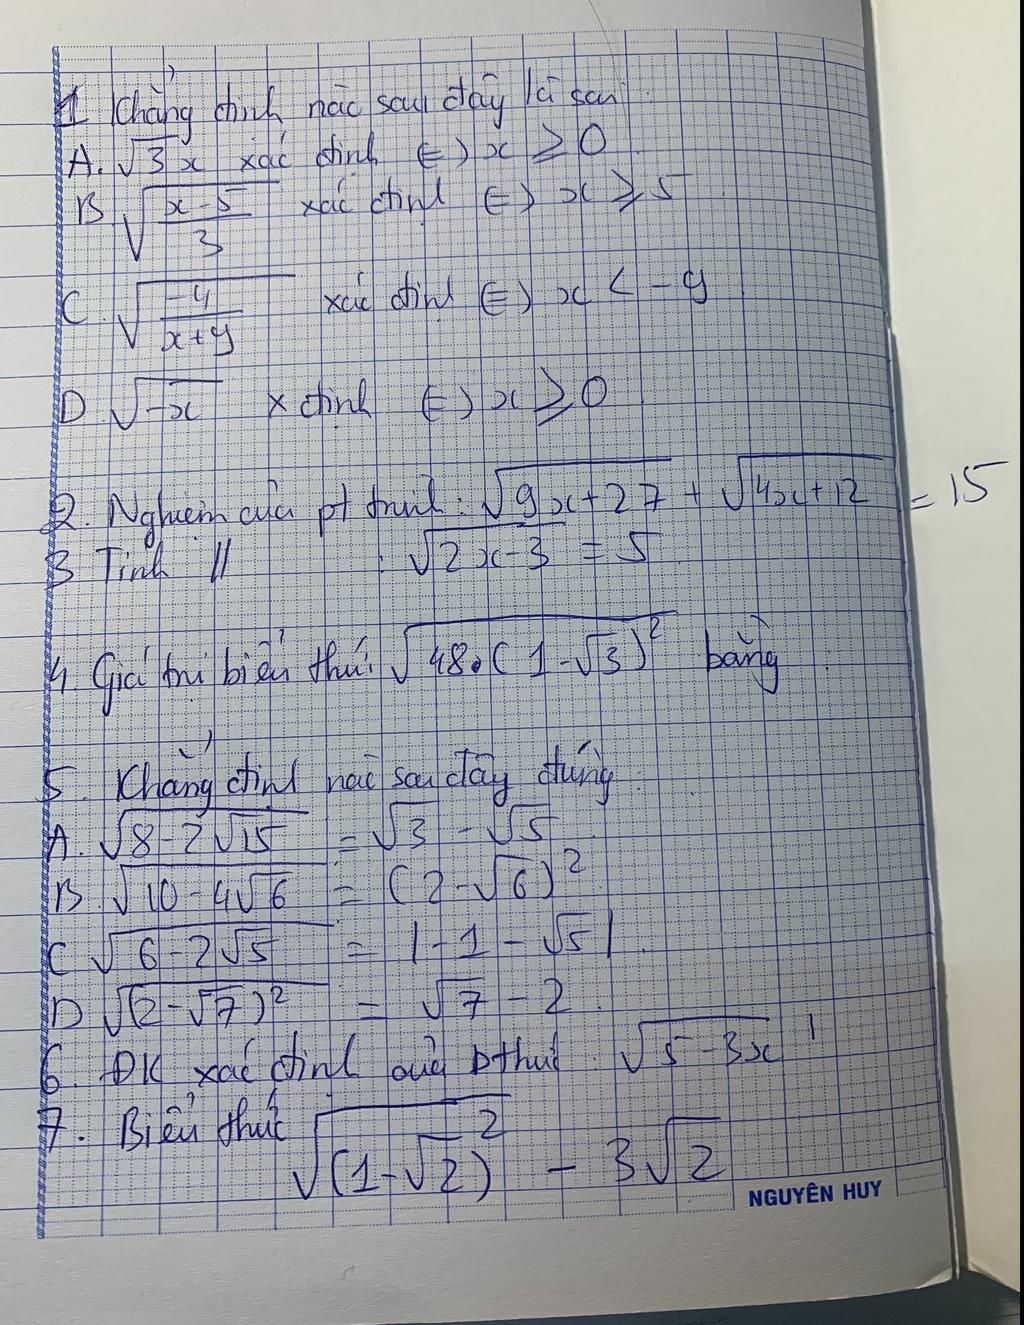 1 Khẳng định nào sau đây là sai:
A. √3x xác định (=) x ≥ 0
B. √((x-5)/3) xác định (=) x ≥ 5
C. √(-4/(x+y)) xác định (=) x < -y
D. √-x x định (=) x ≥ 0
2. Nghiệm của pt trình: √(9x+27) + √(4x+12) = 15
3 Tính // : √(2x-3) = 5
4. Giá trị biểu thức √(48.(1-√3)²) bằng :
5. Khẳng định nào sau đây đúng :
A. √(8-2√15) = √3 - √5
B. √(10-4√6) = (2-√6)²
C √(6-2√5) = |-1-√5|.
D √((2-√7)²) = √7 - 2.
6. ĐK xác định của bthức : √(5-3x)
7. Biểu thức √((1-√2)²) - 3√2
NGUYÊN HUY